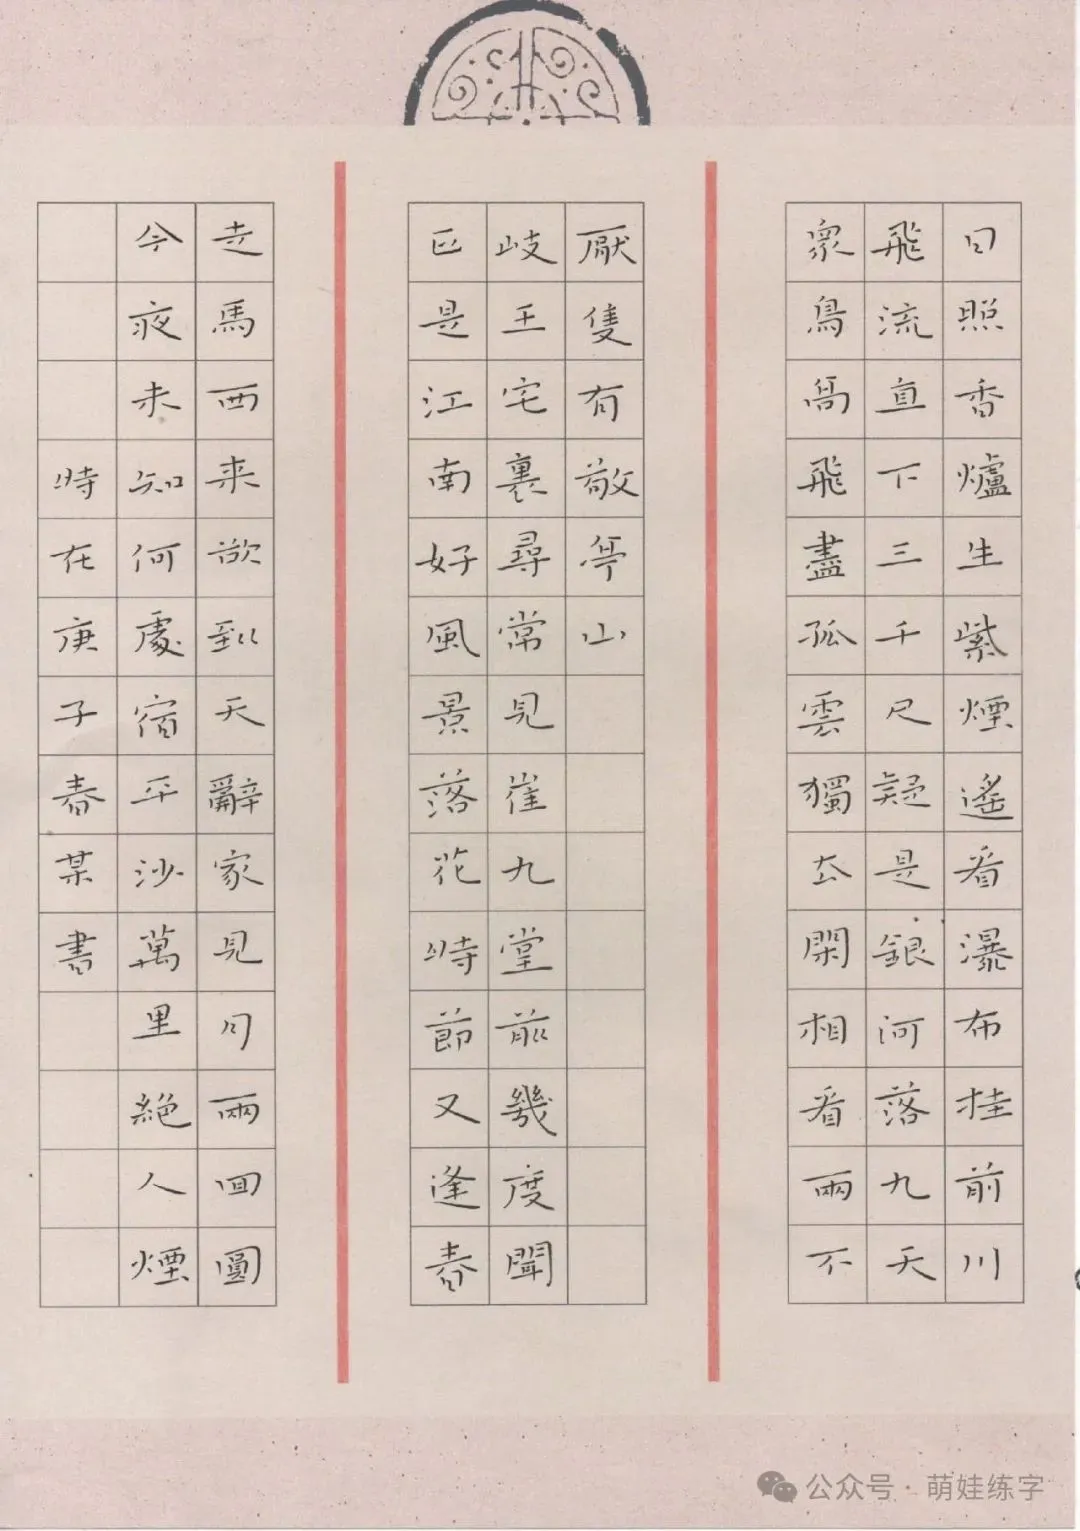 日照香爐生紫煙遙看瀑布挂前川
飛流直下三千尺疑是銀河落九天
衆鳥高飛盡孤雲獨去閑相看兩不
厭隻有敬亭山
岐王宅裏尋常見崔九堂前幾度聞
正是江南好風景落花時節又逢春
走馬西来欲到天辭家見月兩回圓
今夜未知何處宿平沙萬里絕人煙
時在庚子春某書
公众号 · 萌娃练字